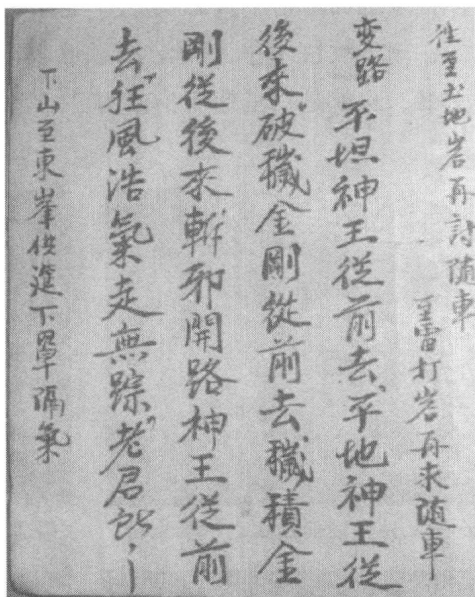 往至土地岩再討隨車
至雷打岩再求隨車
变路 平坦神王從前去平地神王從
後來破穢金剛從前去穢積金
剛從後來斬邪開路神王從前
去狂風浩氣走無踪老君
下山至東峯供進下罩隔氣